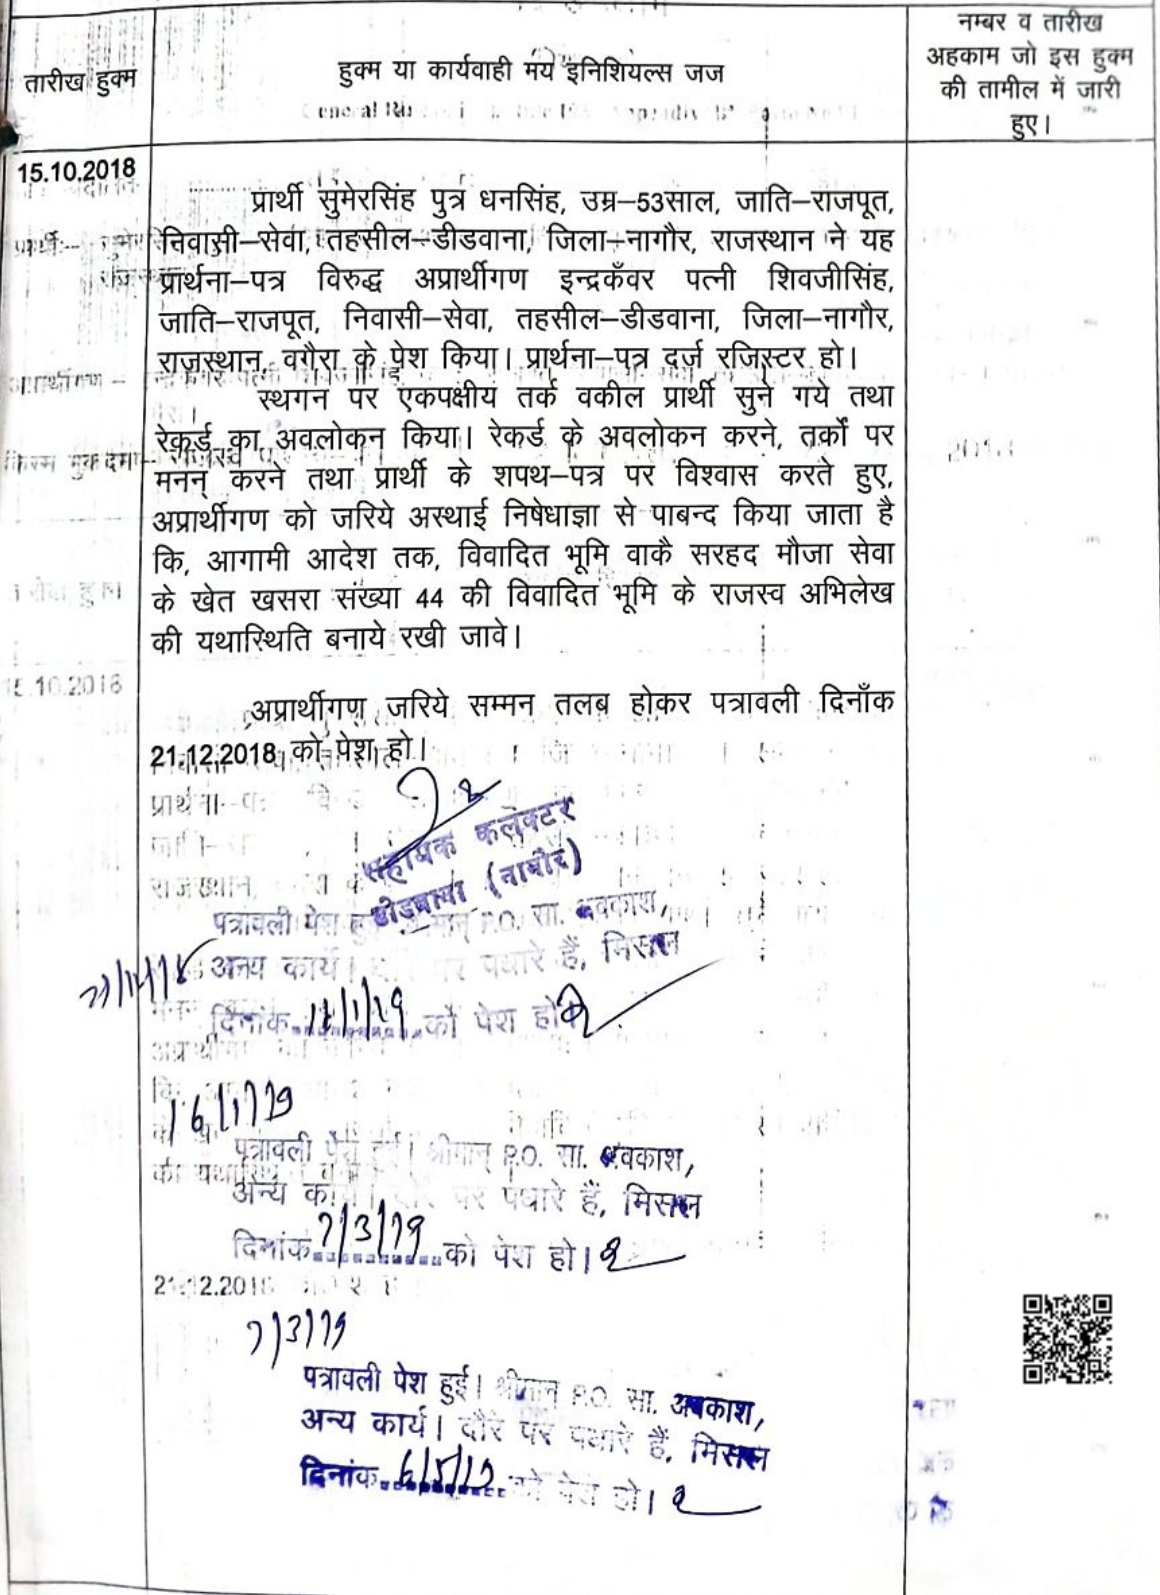 तारीख हुक्म
हुक्म या कार्यवाही मय इनिशियल्स जज
नम्बर व तारीख
अहकाम जो इस हुक्म
की तामील में जारी
हुए।
15.10.2018
प्रार्थी सुमेरसिंह पुत्र धनसिंह, उम्र–53साल, जाति–राजपूत,
निवासी–सेवा, तहसील–डीडवाना, जिला–नागौर, राजस्थान ने यह
प्रार्थना–पत्र विरुद्ध अप्रार्थीगण इन्द्रकँवर पत्नी शिवजीसिंह,
जाति–राजपूत, निवासी–सेवा, तहसील–डीडवाना, जिला–नागौर,
राजस्थान, वगैरा के पेश किया। प्रार्थना–पत्र दर्ज रजिस्टर हो।
स्थगन पर एकपक्षीय तर्क वकील प्रार्थी सुने गये तथा
रेकर्ड का अवलोकन किया। रेकर्ड के अवलोकन करने, तर्कों पर
मनन् करने तथा प्रार्थी के शपथ–पत्र पर विश्वास करते हुए,
अप्रार्थीगण को जरिये अस्थाई निषेधाज्ञा से पाबन्द किया जाता है
कि, आगामी आदेश तक, विवादित भूमि वाकै सरहद मौजा सेवा
के खेत खसरा संख्या 44 की विवादित भूमि के राजस्व अभिलेख
की यथास्थिति बनाये रखी जावे।
अप्रार्थीगण जरिये सम्मन तलब होकर पत्रावली दिनाँक
21.12.2018 को पेश हो।
सहायक कलेक्टर
डीडवाना (नागौर)
पत्रावली पेश हुई। श्रीमान् P.O. सा. अवकाश,
अन्य कार्य। दौरे पर पधारे हैं, मिसल
दिनांक को पेश हो।
16/1/19
पत्रावली पेश हुई। श्रीमान् P.O. सा. अवकाश,
अन्य कार्य। दौरे पर पधारे हैं, मिसल
दिनांक 7/3/19 को पेश हो।
7/3/19
पत्रावली पेश हुई। श्रीमान् P.O. सा. अवकाश,
अन्य कार्य। दौरे पर पधारे हैं, मिसल
दिनांक 6/5/19 को पेश हो।